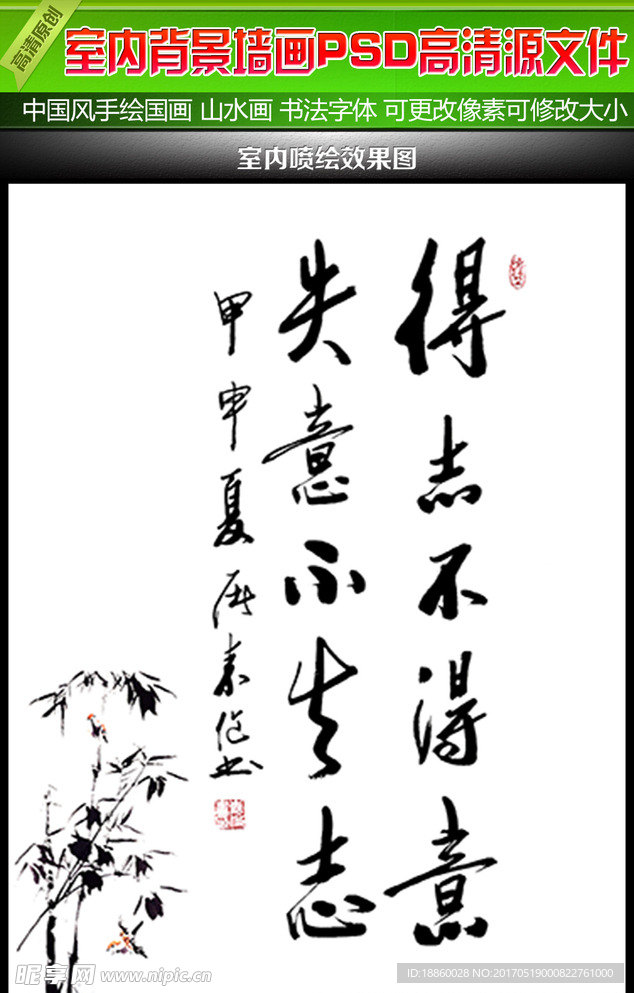 高清原创
室内背景墙画PSD高清源文件
中国风手绘国画 山水画 书法字体 可更改像素可修改大小
室内喷绘效果图
得志不得意
失意不失志
甲申夏
昵享网 www.nipic.cn
ID:18860028 NO:20170519000822761000